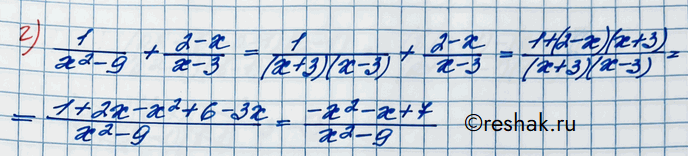 г) 1/(x²-9) + (2-x)/(x-3) = 1/((x+3)(x-3)) + (2-x)/(x-3) = (1+(2-x)(x+3))/((x+3)(x-3)) =
= (1+2x-x²+6-3x)/(x²-9) = (-x²-x+7)/(x²-9)
©reshak.ru